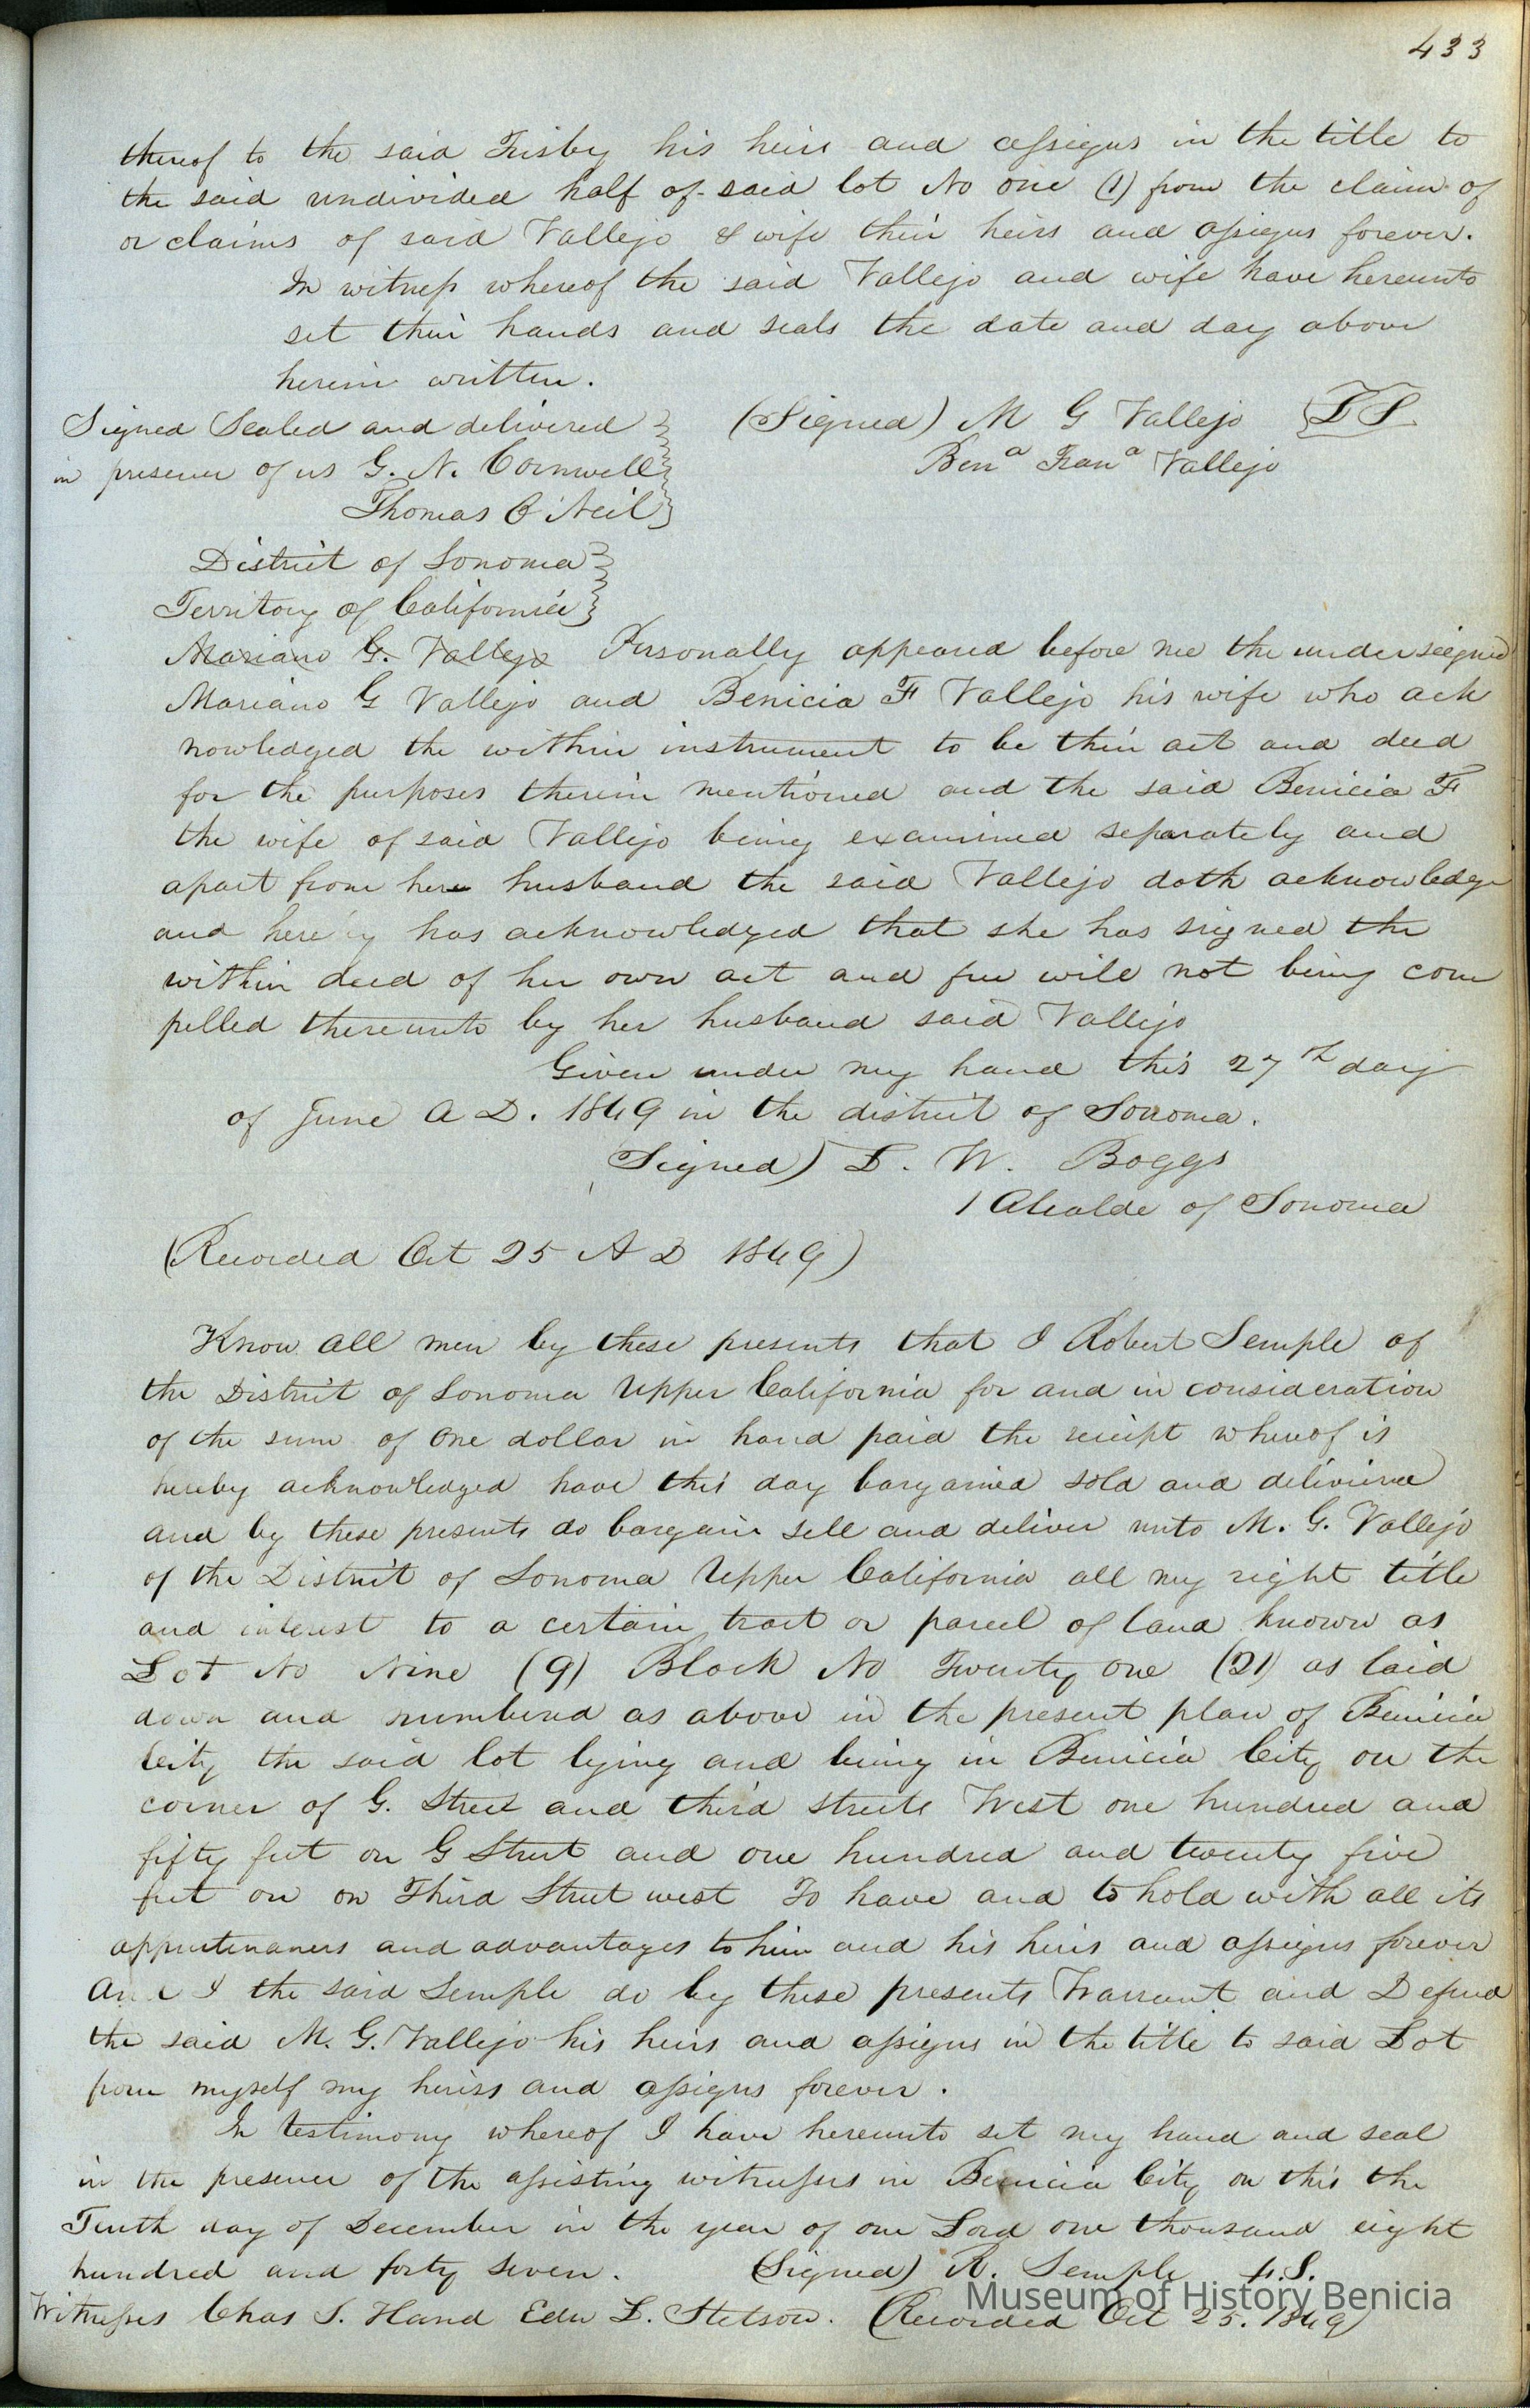 433
thereof to the said Frisby his heirs and assigns in the title to
the said undivided half of said lot No one (1) from the claim of
or claims of said Vallejo & wife their heirs and assigns forever.
In witness whereof the said Vallejo and wife have hereunto
set their hands and seals the date and day above
herein written.
Signed Sealed and delivered (Signed) M G Vallejo L S
in presence of us G. N. Cornwell Bena Frana Vallejo
Thomas O Neil
District of Sonoma
Territory of California
Mariano G. Vallejo Personally appeared before me the undersiegned
Mariano G Vallejo and Benicia F Vallejo his wife who ack
nowledged the within instrument to be their act and deed
for the purposes therein mentioned and the said Benicia F
the wife of said Vallejo being examined separately and
apart from here husband the said Vallejo doth acknowledge
and hereby has acknowledged that she has signed the
within deed of her own act and free will not being com
pelled thereunto by her husband said Vallejo
Given under my hand this 27th day
of June A D. 1849 in the district of Sonoma.
(Signed) L. W. Boggs
1 Alcalde of Sonoma
(Recorded Oct 25 A D 1849)
Know all men by these presents that I Robert Semple of
the District of Sonoma Upper California for and in consideration
of the sum of One dollar in hand paid the reciept whereof is
hereby acknowledged have this day bargained sold and delivered
and by these presents do bargain sell and deliver unto M. G. Vallejo
of the District of Sonoma Upper California all my right title
and interest to a certain tract or parcel of land known as
Lot No Nine (9) Block No Twenty one (21) as laid
down and numbered as above in the present plan of Benicia
City the said lot lying and being in Benicia City on the
corner of G. Street and third streets West one hundred and
fifty feet on G Street and one hundred and twenty five
feet on on Third Street west To have and to hold with all its
appurtenances and advantages to him and his heirs and assigns forever
And I the said Semple do by these presents Warrant and Defend
the said M. G. Vallejo his heirs and assigns in the title to said Lot
from myself my heirss and assigns forever.
In testimony whereof I have hereunto set my hand and seal
in the presence of the assisting witnesses in Benicia City on this the
Tenth day of December in the year of our Lord one thousand eight
hundred and forty seven. (Signed) R. Semple L.S.
Witnesses Chas S. Hand Edw L. Stetson. (Recorded Oct 25. 1849)
Museum of History Benicia